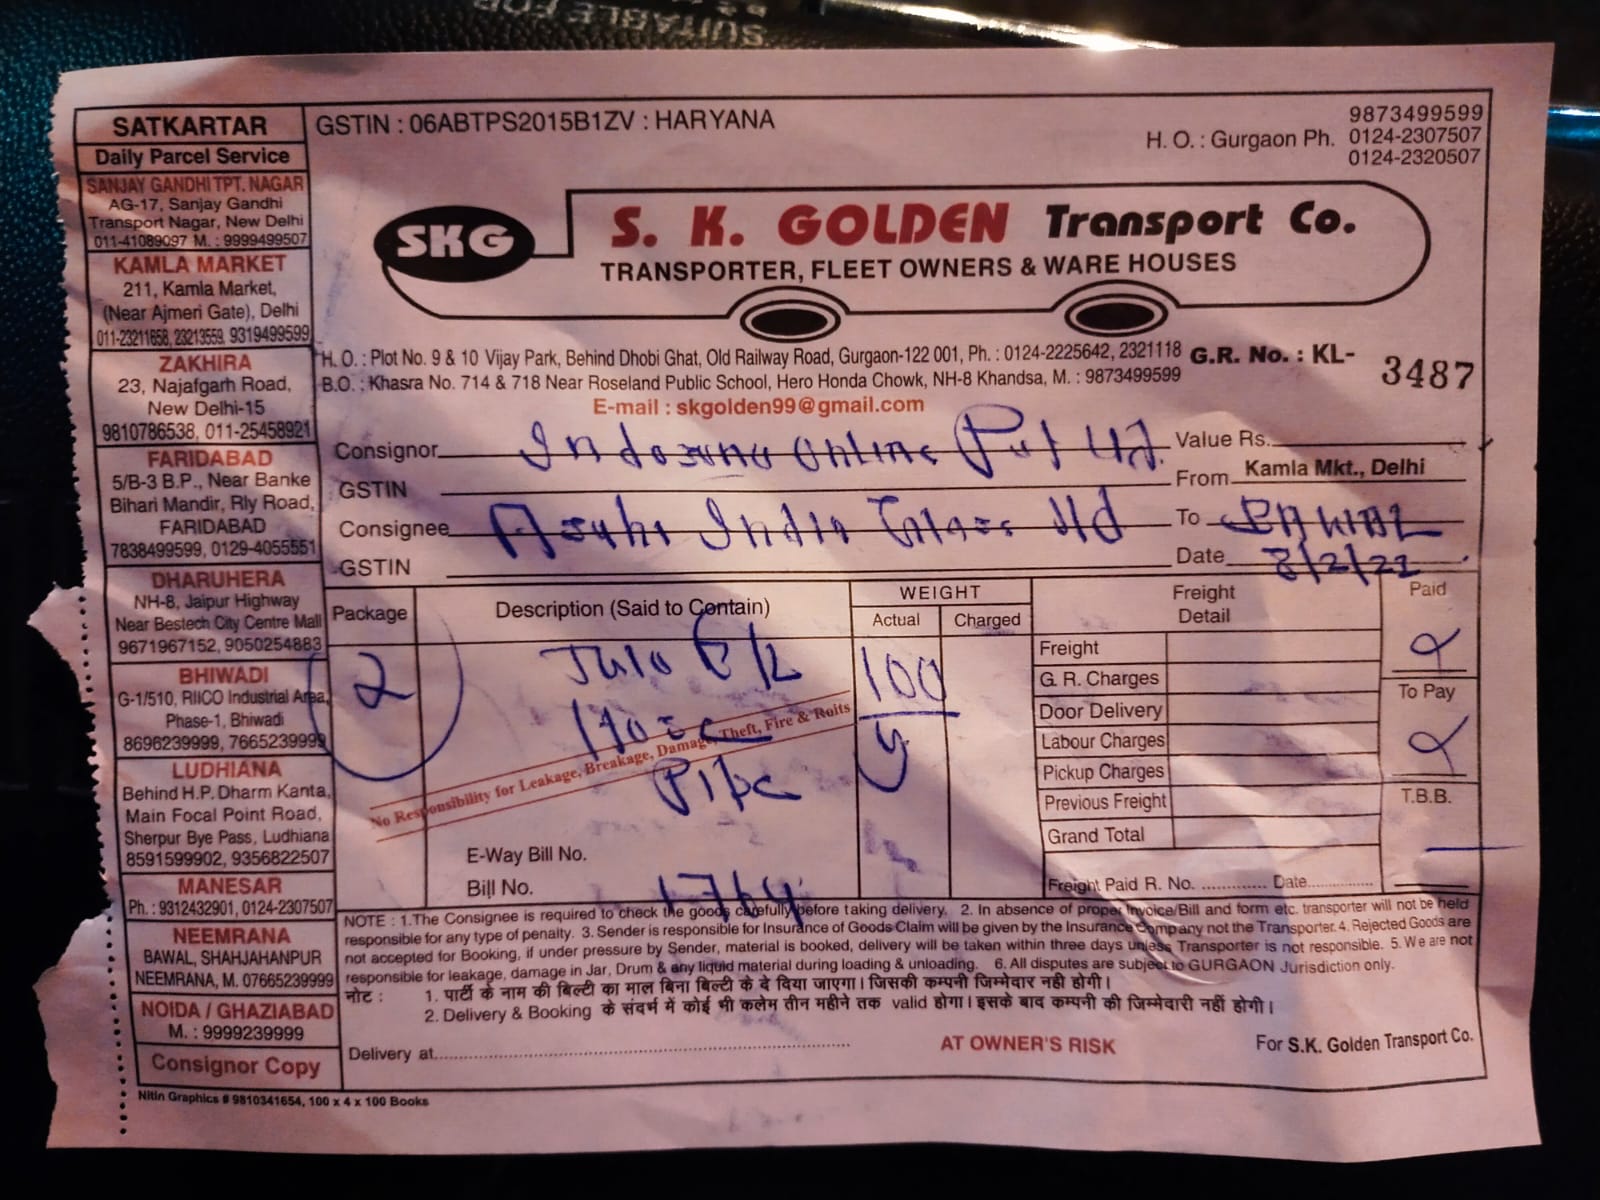 SATKARTAR
Daily Parcel Service
SANJAY GANDHI TPT. NAGAR
AG-17, Sanjay Gandhi
Transport Nagar, New Delhi
011-41089097 M. : 9999499507
KAMLA MARKET
211, Kamla Market,
(Near Ajmeri Gate), Delhi
011-23211658, 23213559, 9319499599
ZAKHIRA
23, Najafgarh Road,
New Delhi-15
9810786538, 011-25458921
FARIDABAD
5/B-3 B.P., Near Banke
Bihari Mandir, Rly Road,
FARIDABAD
7838499599, 0129-4055551
DHARUHERA
NH-8, Jaipur Highway
Near Bestech City Centre Mall
9671967152, 9050254883
BHIWADI
G-1/510, RIICO Industrial Area,
Phase-1, Bhiwadi
8696239999, 7665239999
LUDHIANA
Behind H.P. Dharm Kanta,
Main Focal Point Road,
Sherpur Bye Pass, Ludhiana
8591599902, 9356822507
MANESAR
Ph. : 9312432901, 0124-2307507
NEEMRANA
BAWAL, SHAHJAHANPUR
NEEMRANA, M. 07665239999
NOIDA / GHAZIABAD
M. : 9999239999
Consignor Copy
Nitin Graphics # 9810341654, 100 x 4 x 100 Books
GSTIN : 06ABTPS2015B1ZV : HARYANA
9873499599
H. O. : Gurgaon Ph. 0124-2307507
0124-2320507
SKG
S. K. GOLDEN Transport Co.
TRANSPORTER, FLEET OWNERS & WARE HOUSES
H. O. : Plot No. 9 & 10 Vijay Park, Behind Dhobi Ghat, Old Railway Road, Gurgaon-122 001, Ph. : 0124-2225642, 2321118
B.O. : Khasra No. 714 & 718 Near Roseland Public School, Hero Honda Chowk, NH-8 Khandsa, M. : 9873499599
E-mail : skgolden99@gmail.com
G.R. No. : KL- 3487
Consignor Online Pvt Ltd. Value Rs.
GSTIN From Kamla Mkt., Delhi
Consignee Asahi India Glass Ltd To BAWAL
GSTIN Date 8/2/22
Package Description (Said to Contain) WEIGHT Freight Detail Paid
Actual Charged
2 100
Hose
Pipe
No Responsibility for Leakage, Breakage, Damage, Theft, Fire & Roits
E-Way Bill No.
Bill No. 1764
Freight
G. R. Charges
Door Delivery
Labour Charges
Pickup Charges
Previous Freight
Grand Total
To Pay
T.B.B.
Freight Paid R. No. ............. Date...............
NOTE : 1.The Consignee is required to check the goods carefully before taking delivery. 2. In absence of proper Invoice/Bill and form etc. transporter will not be held
responsible for any type of penalty. 3. Sender is responsible for Insurance of Goods Claim will be given by the Insurance Company not the Transporter. 4. Rejected Goods are
not accepted for Booking, if under pressure by Sender, material is booked, delivery will be taken within three days unless Transporter is not responsible. 5. We are not
responsible for leakage, damage in Jar, Drum & any liquid material during loading & unloading. 6. All disputes are subject to GURGAON Jurisdiction only.
नोट : 1. पार्टी के नाम की बिल्टी का माल बिना बिल्टी के दे दिया जाएगा। जिसकी कम्पनी जिम्मेदार नही होगी।
2. Delivery & Booking के संदर्भ में कोई भी कलेम तीन महीने तक valid होगा। इसके बाद कम्पनी की जिम्मेदारी नहीं होगी।
Delivery at
AT OWNER'S RISK
For S.K. Golden Transport Co.